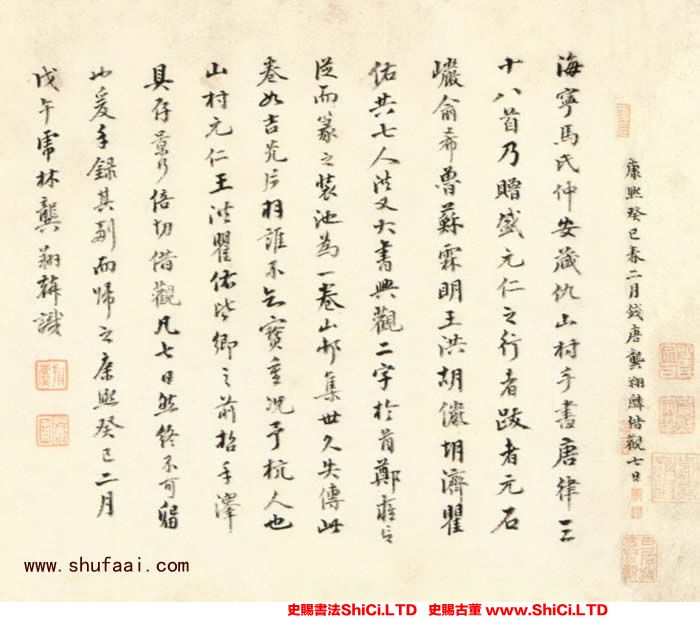 康熙癸巳春二月錢唐龔翔麟借觀七日
海寧馬氏仲安藏仇山村手書唐律三
十八首乃贈盛元仁之行者跋者元石
巘俞希魯蘇霖明王洪胡儼胡濟瞿
佑共七人洪又大書興觀二字於首鄭雍言
從而篆之裝池為一卷山邨集世久失傳此
卷如吉光片羽誰不知寶重況予杭人也
山村元仁王洪瞿佑皆鄉之前哲手澤
具存景行倍切借觀凡七日然終不可
也爰手錄其副而歸之康熙癸巳二月
戊午虎林龔翔麟識
www.shufaai.com
史賜書法ShiCi.LTD 史賜古董 www.ShiCi.LTD